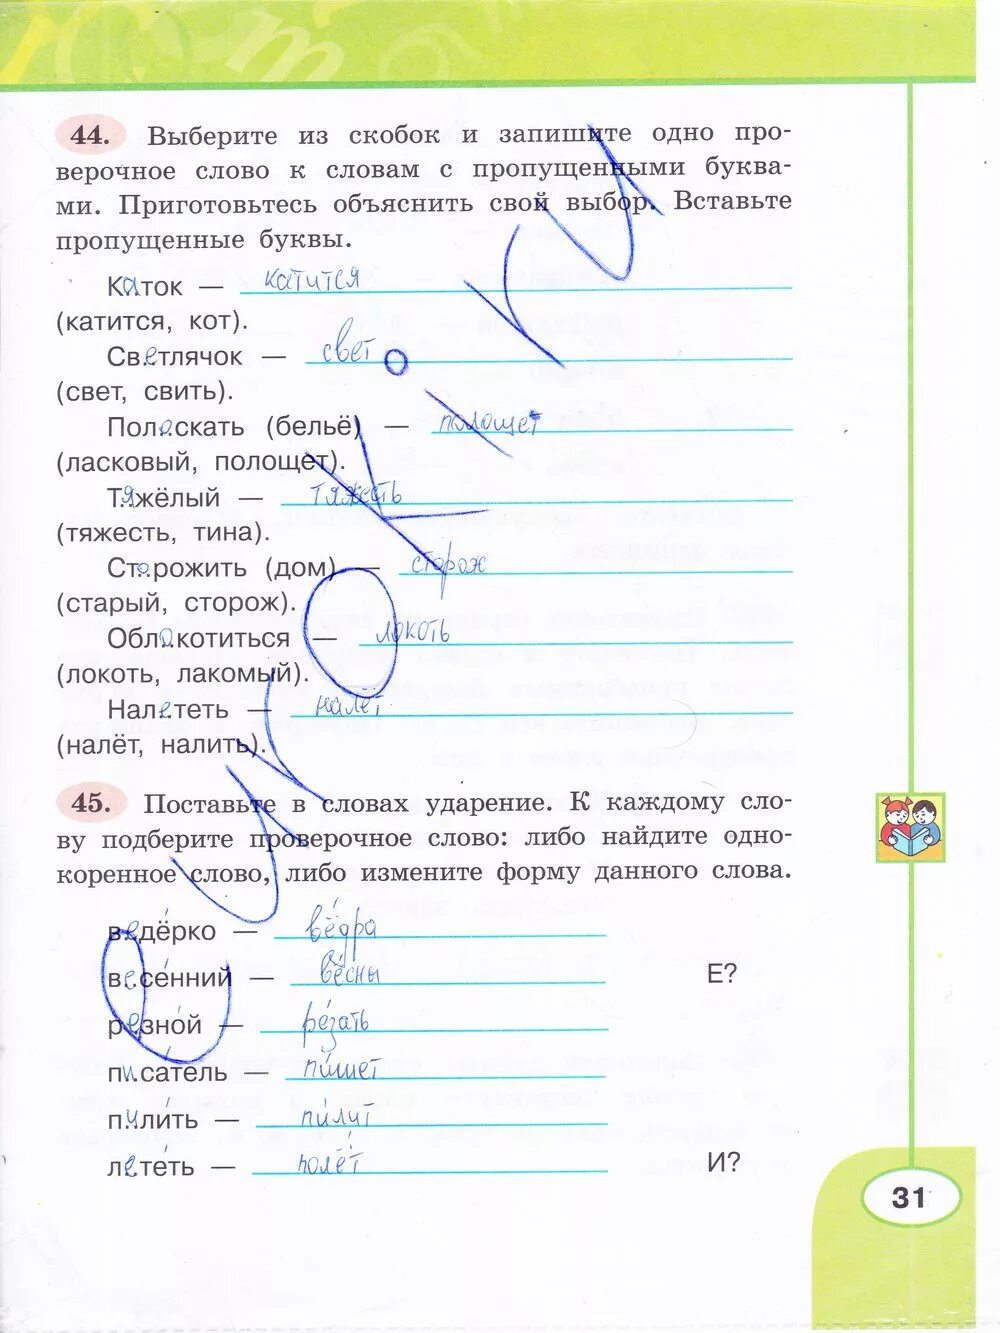 44. Выберите из скобок и запишите одно про-
верочное слово к словам с пропущенными буква-
ми. Приготовьтесь объяснить свой выбор. Вставьте
пропущенные буквы.
Каток — катится
(катится, кот).
Светлячок — свет
(свет, свить).
Полоскать (бельё) — полощет
(ласковый, полощет).
Тяжёлый — тяжесть
(тяжесть, тина).
Сторожить (дом) — сторож
(старый, сторож).
Облокотиться — локоть
(локоть, лакомый).
Налететь — налёт
(налёт, налить).
45. Поставьте в словах ударение. К каждому сло-
ву подберите проверочное слово: либо найдите одно-
коренное слово, либо измените форму данного слова.
ведёрко — вёдра
весе́нний — вёсны Е?
резно́й — ре́зать
писа́тель — пи́шет
пили́ть — пи́лит
лете́ть — полёт И?
31